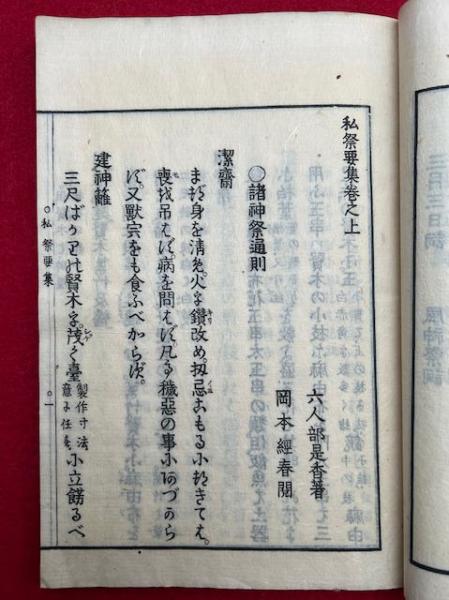 私祭要集巻之上
六人部是香著
岡本經春閲
○諸神祭通則
潔齋
まづ身を清め。火を鑽改め。扨忌こもるにおきては。
喪を弔はず。病を問はず。凡て穢惡の事にあづから
ず。又獸宍をも食ふべからず。
建神籬
三尺ばかりの賢木を。茂く臺 製作寸法意に任す に立餝るべ
○私祭要集 ○一